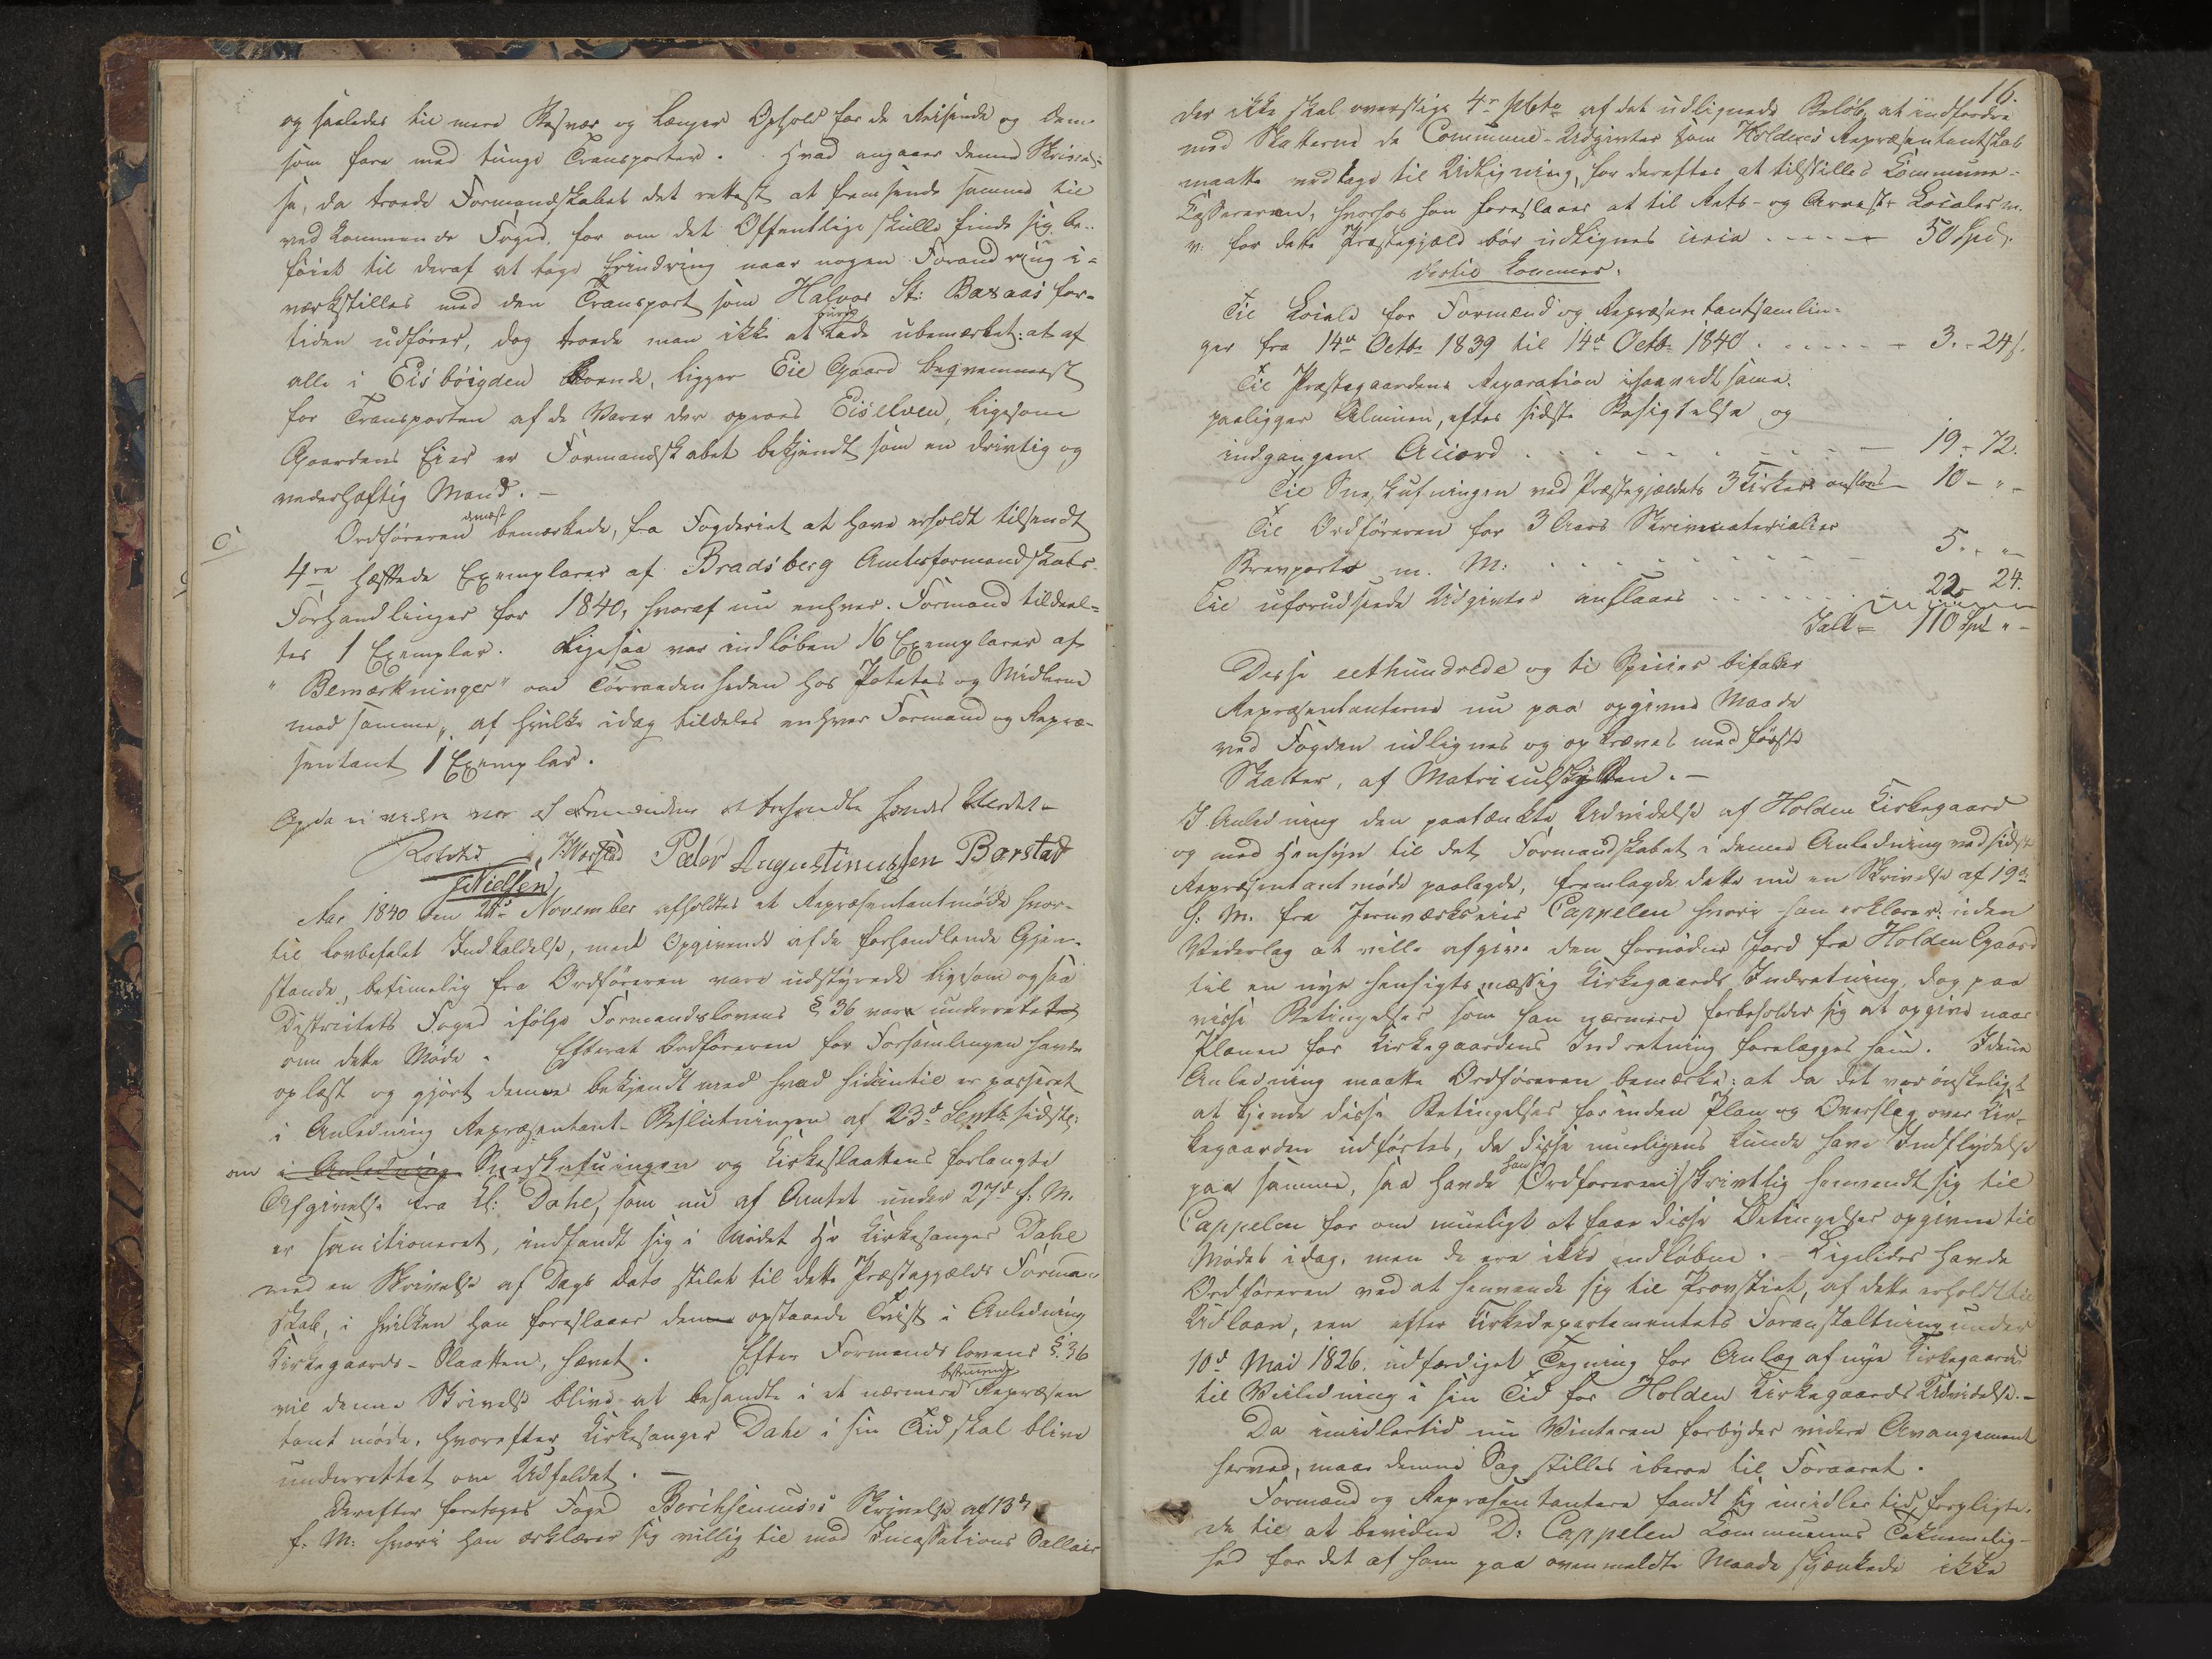 og saaledes til mere Besvær og længer Ophold for de Reisende og dem
som fare med tunge Transporter. Hvad angaaer denne Skrivel-
se, da troede Formandskabet det rettest at fremsende samme til
vedkommende Foged, for om det Offentlige skulle finde sig be-
föiet til deraf at tage Erindring naar nogen Forandring i-
værkstilles med den Transport som Halvor St: Baraas for-
tiden udförer, dog troede man ikke at burde lade ubemærket: at af
alle i Eisböigden boende, ligger Eie Gaard beqvemmest
for Transporten af de Varer der oproes Eiselven, ligesom
Gaardens Eier er Formandskabet bekjendt som en drivtig og
vederhæftig Mand. -
6/ Ordföreren dernæst bemærkede, fra Fogderiet at have erholdt tilsendt
4re hæftede Exemplarer af Bradsberg Amtsformandskabs-
Forhandlinger for 1840, hvoraf nu enhver Formand tildeel-
tes 1 Exemplar. Ligesaa var indlöben 16 Exemplarer af
"Bemærkninger" om Törraadenheden hos Potetes og Midlerne
mod samme, af hvilke idag tildeles enhver Formand og Repræ-
sentant 1 Exemplar.
Og da ei videre var at behandle hævedes Mödet -
Peder Augustinussen Borstad
JNielsen
Aar 1840 den November afholdtes et Repræsentantmöde hvor-
til lovbefalet Indkaldelse, med Opgivende af de forhandlende Gjen-
stande, betimelig fra Ordföreren vare udstyrede ligesom ogsaa
Districtets Foged ifölge Formandslovens § 36 var underrettet
om dette Möde. Efterat Ordföreren for Forsamlingen havde
oplæst og gjort denne bekjendt med hvad hidindtil er passeret
i Anledning Repræsentant-Beslutningen af 23d Septbr sidstl:
om i Anledning Sneeskufningen og Kirkeslaattens forlangte
Afgivelse fra Kl: Dahl, som nu af Amtet under 27d f: M.
er sanctioneret, indfandt sig i Mödet Hr Kirkesanger Dahl
med en Skrivelse af Dags Dato stilet til dette Præstegjælds Forman-
skab, i hvilken han foreslaaer denne opstaaede Tvist i Anledning
Kirkegaards-Slaatten, hævet. Efter Formandslovens §. 36
vil denne Skrivelse blive at behandle i et nærmere bestemmende Repræsen
tantmöde, hvorefter Kirkesanger Dahl i sin Tid skal blive
underrettet om Udfaldet. -
Derefter foretoges Foged Borchsenius's Skrivelse af 13d
f. M: hvori han erklærer sig villig til mod Incassations Sallair
16.
der ikke skal overstige 4r pCto af det udlignede Belöb, at indfordre
med Skatterne de Commune-Udgivter som Holdens Repræsentantskab
maatte vedtage til Udligning, for derefter at tilstilles Commune-
Cassereren, hvorhos han foreslaaer at til Rets- og Arrest-Locales m.
v: for dette Præstegjæld bör udlignes circa . . . . 50 Spd.
dertil kommer:
Til Locale for Formænd og Repræsentantsamlin-
ger fra 14d Octb. 1839 til 14d Octb. 1840 . . . . . 3.-24 s.
Til Præstegaardens Reparation isaavidt samme
paaligger Almuen, efter sidste Besigtelse og
indgangen Accord . . . . . . . . . 19.-72.
Til Sneeskufningen ved Præstegjældets 3 Kirker anslaaes - 10 - " -
Til Ordföreren for 3 Aars Skrivmaterialier
Brevporto m. M: . . . . . . . . . 5. - " -
Til uforudseede Udgivter anslaaes . . . . . . 22. 24.
Ialt = 110 Spd " -
Disse eethundrede og ti Species bifalder
Repræsentanterne nu paa opgivne Maade
ved Fogden udlignes og opkræves med förste
Skatter, af Matriculskylden. -
I Anledning den paatænkte Udvidelse af Holden Kirkegaard
og med Hensyn til det Formandskabet i denne Anledning ved sidste
Repræsentantmöde paalagde, fremlagde dette nu en Skrivelse af 19d
f. M. fra Jernværkseier Cappelen hvori han erklærer: uden
Vederlag at ville afgive den fornödne Jord fra Holden Gaard
til en nye hensigtsmæssig Kirkegaards Indretning, dog paa
visse Betingelser som han nærmere forbeholder sig at opgive naar
Planen for Kirkegaardens Indretning forelægges ham. I denne
Anledning maatte Ordföreren bemærke: at da det var önskeligt
at kjende disse Betingelser forinden Plan og Overslag over Kir-
kegaarden udförtes, da disse mueligens kunde have Indflydelse
paa samme, saa havde han (Ordföreren) skrivtlig henvendt sig til
Cappelen for om mueligt at faae disse Betingelser opgivne til
Mödet idag, men de ere ikke indlöbne. - Ligeledes havde
Ordföreren ved at henvende sig til Provstiet, af dette erholdt til
Udlaan, een efter Kirkedepartementets Foranstaltning under
10d Mai 1826. udfærdiget Tegning for Anlæg af nye Kirkegaarde
til Veiledning i sin Tid for Holden Kirkegaards Udvidelse. -
Da imidlertid nu Vinteren forbyder videre Arrangement
herved, maae denne Sag stilles iberoe til Foraaret.
Formænd og Repræsentantere fandt sig imidlertid forpligte-
de til at bevidne D: Cappelen Communens Taknemmelig-
hed for det af ham paa ovenmeldte Maade skjænkede ikke